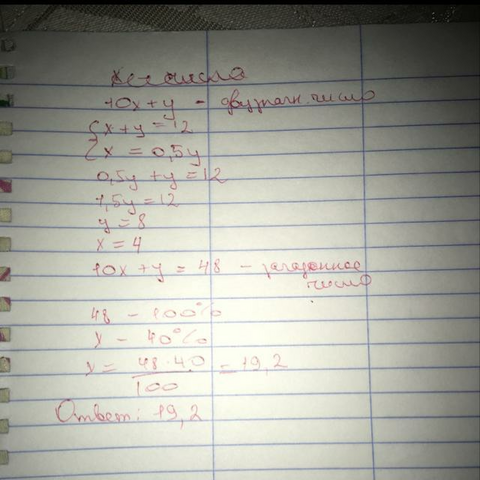 числа
10x+y - двузначн. число
{x+y=12
{x = 0,5y
0,5y + y = 12
1,5y = 12
y = 8
x = 4
10x + y = 48 - загаданное
число
48 - 100%
x - 40%
x = 48·40 / 100 = 19,2
Ответ: 19,2